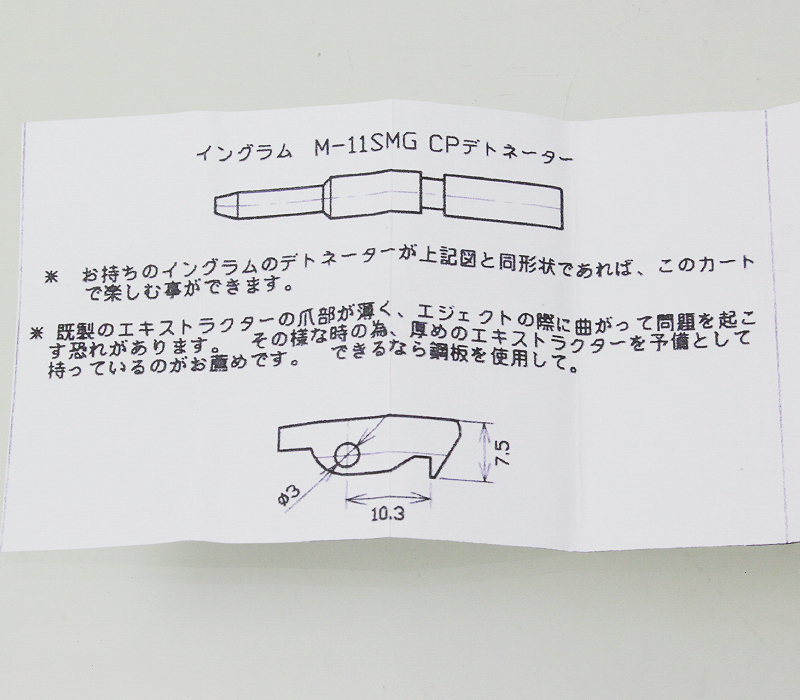 イングラム M-11SMG CPデトネーター
※ お持ちのイングラムのデトネーターが上記図と同形状であれば、このカート
で楽しむ事ができます。
※ 既製のエキストラクターの爪部が薄く、エジェクトの際に曲がって問題を起こ
す恐れがあります。 その様な時の為、厚めのエキストラクターを予備として
持っているのがお薦めです。 できるなら鋼板を使用して。
7.5
φ3
10.3